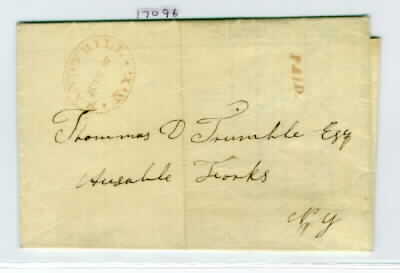 17096
PAID
Thommas D Trumble Esqr
Ausable Forks
N. Y